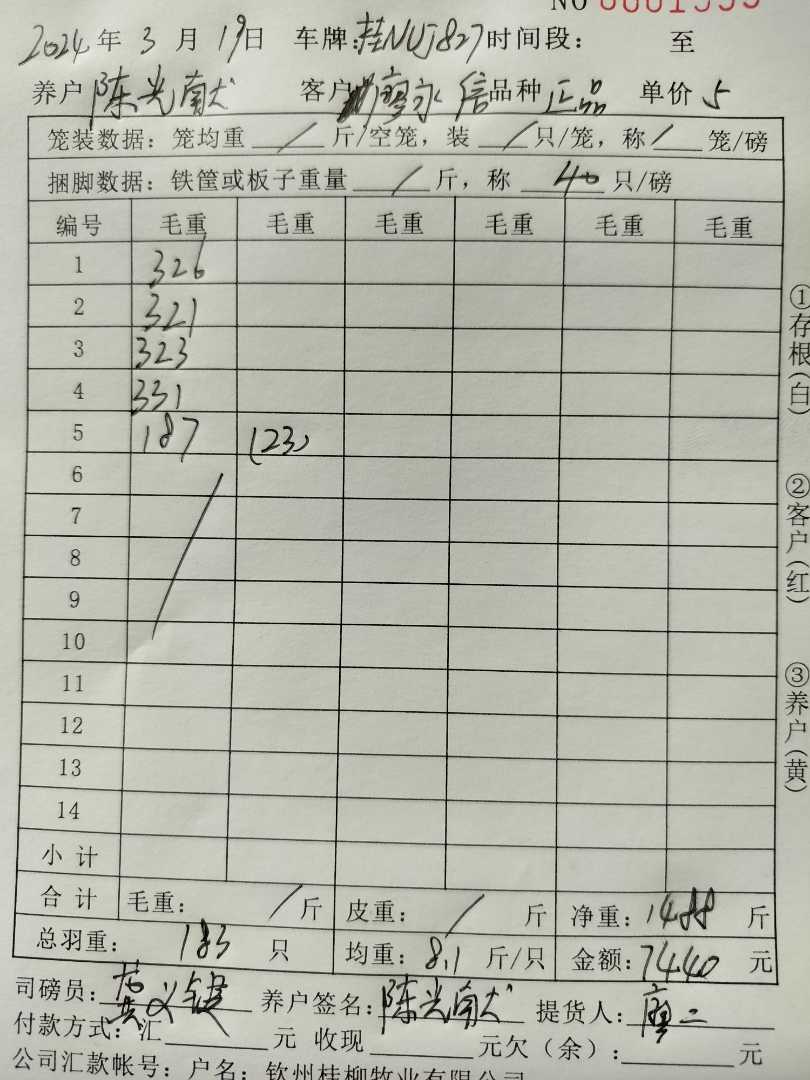 NO 0001999
2024年3月19日 车牌:桂NUJ827 时间段: 至
养户 陈光献 客户 廖永信 品种 正品 单价 5
笼装数据: 笼均重 / 斤/空笼, 装 / 只/笼, 称 / 笼/磅
捆脚数据: 铁筐或板子重量 / 斤, 称 40 只/磅
编号 毛重 毛重 毛重 毛重 毛重 毛重
1 326
2 321
3 323
4 331
5 187 (23)
6
7
8
9
10
11
12
13
14
小计
合计 毛重: / 斤 皮重: / 斤 净重: 1488 斤
总羽重: 183 只 均重: 8.1 斤/只 金额: 7440 元
司磅员: 黄义键 养户签名: 陈光献 提货人: 廖二
付款方式: 汇 元 收现 元欠(余): 元
公司汇款帐号: 户名: 钦州桂柳牧业有限公司
①存根(白)
②客户(红)
③养户(黄)